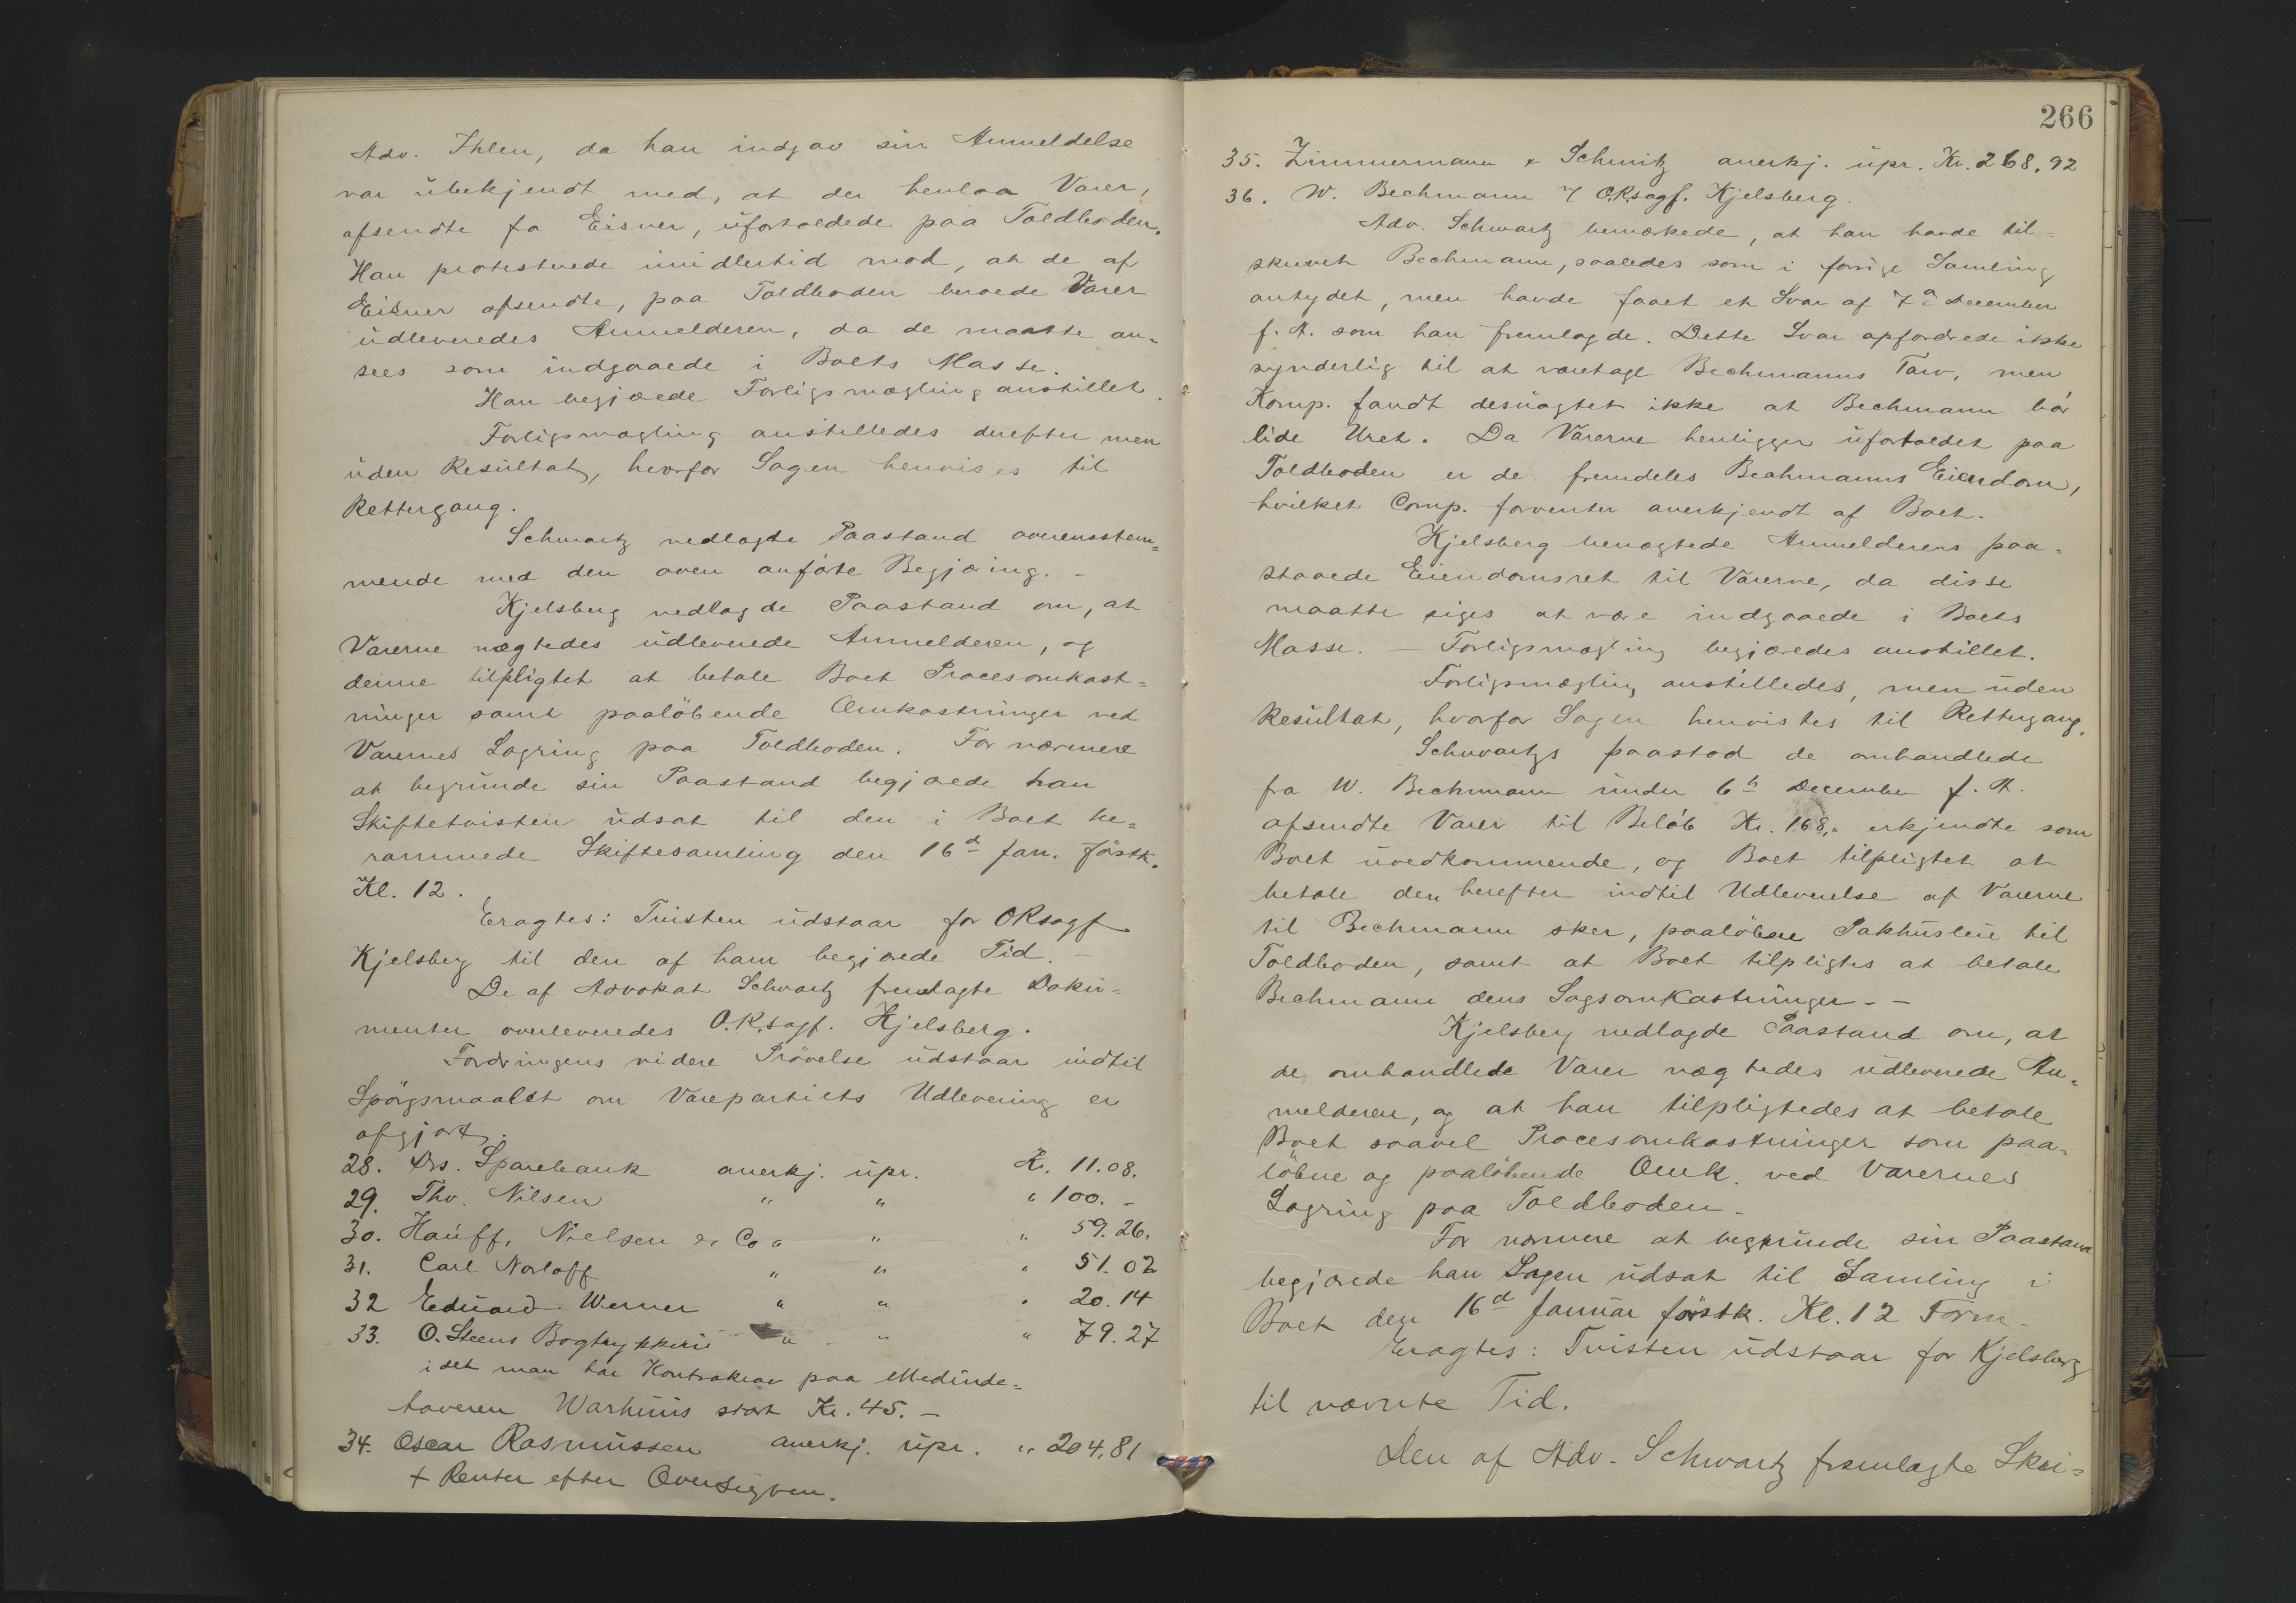 Adv. Ihlen, da han indgav sin Anmeldelse
var ubekjendt med, at der henlaa Varer,
afsendte fa Eisner, ufortoldede paa Toldboden.
Han protesterede imidlertid mod, at de af
Eisner afsendte, paa Toldboden beroede Varer
udleveredes Anmelderen, da de maatte an=
sees som indgaaede i Boets Masse.
Han begjærede Forligsmægling anstillet.
Forligsmægling anstilledes derefter men
uden Resultat, hvorfor Sagen henvises til
Rettergang.
Schwartz nedlagte Paastand overensstem=
mende med den oven anførte Begjæring. -
Kjelsberg nedlagde Paastand om, at
Varerne nægtedes udleverede Anmelderen, og
denne tilpligtet at betale Boet Procesomkost=
ninger samt paaløbende Omkostninger ved
Varernes Lagring paa Toldboden. For nærmere
at begrunde sin Paastand begjærede han
Skiftetvisten udsat til den i Boet be=
rammede Skiftesamling den 16d Jan. førstk.
Kl. 12.
Eragtes: Tvisten udstaar for ORsagf
Kjelsberg til den af ham begjærede Tid. -
De af Advokat Schwartz fremlagte Doku=
menter overleveredes O.R.sagf. Kjelsberg.
Fordringens videre Prøvelse udstaar indtil
Spørgsmaalet om Varepartiets Udlevering er
afgjort.
28. Drs. Sparebank anerkj. upr. Kr. 11.08.
29. Thv. Nilsen " " " 100. -
30. Hauff, Nielsen & Co " " " 59.26.
31. Carl Norloff " " " 51.02
32 Eduard Werner " " " 20.14
33. O. Steens Bogtrykkeri " " " 79.27
idet man har Kontrakrav paa Medinde=
haveren Warhuus stort Kr. 45. -
34. Oscar Rasmussen anerkj. upr. " 204,81
+ Renter efter Opgivven.
266
35. Zimmermann & Schmitz anerkj. upr. Kr. 268,92
36. W. Bechmann v/ ORsagf. Kjelsberg.
Adv. Schwartz bemærkede, at han havde til=
skrevet Bechmann, saaledes som i forrige Samling
antydet, men havde faaet et Svar af 7de December
f. A. som han fremlagde. Dette Svar opfordrede ikke
synderlig til at varetage Bechmanns Tarv, men
Komp. fandt desuagtet ikke at Bechmann bør
lide Uret. Da Varerne henligger ufortoldet paa
Toldboden er de fremdeles Bechmanns Eiendom,
hvilket Comp. forventer anerkjendt af Boet.
Kjelsberg benægtede Anmelderens paa=
staaede Eiendomsret til Varerne, da disse
maatte siges at være indgaaede i Boets
Masse. - Forligsmægling begjæredes anstillet.
Forligsmægling anstilledes, men uden
Resultat, hvorfor Sagen henvistes til Rettergang.
Schwartzs paastod de omhandlede
fra W. Bechmann under 6te December f. A.
afsendte Varer til Beløb Kr. 168," erkjendte som
Boet uvedkommende, og Boet tilpligtet at
betale den herefter indtil Udleverelse af Varerne
til Bechmann sker, paaløbne Pakhusleie til
Toldboden, samt at Boet tilpligtes at betale
Bechmann dens Sagsomkostninger. -
Kjelsberg nedlagde Paastand om, at
de omhandlede Varer nægtedes udleverede An=
melderen, og at han tilpligtedes at betale
Boet saavel Procesomkostninger som paa=
løbne og paaløbende Omk. ved Varernes
Lagring paa Toldboden.
For nærmere at begrunde sin Paastand
begjærede han Sagen udsat til Samling i
Boet den 16d Januar førstk. Kl. 12 Form.
Eragtes: Tvisten udstaar for Kjelsberg
til nævnte Tid.
Den af Adv. Schwartz fremlagte Skri=